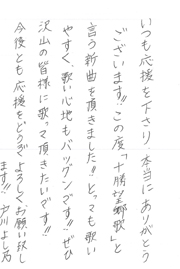 いつも応援を下さり、本当にありがとう
ございます!! この度「十勝望郷歌」と
言う新曲を頂きました!! とっても歌い
やすく、歌い心地もバツグンです!! ぜひ
沢山の皆様に歌って頂きたいです!!
今後とも応援をどうぞよろしくお願い致し
ます!!